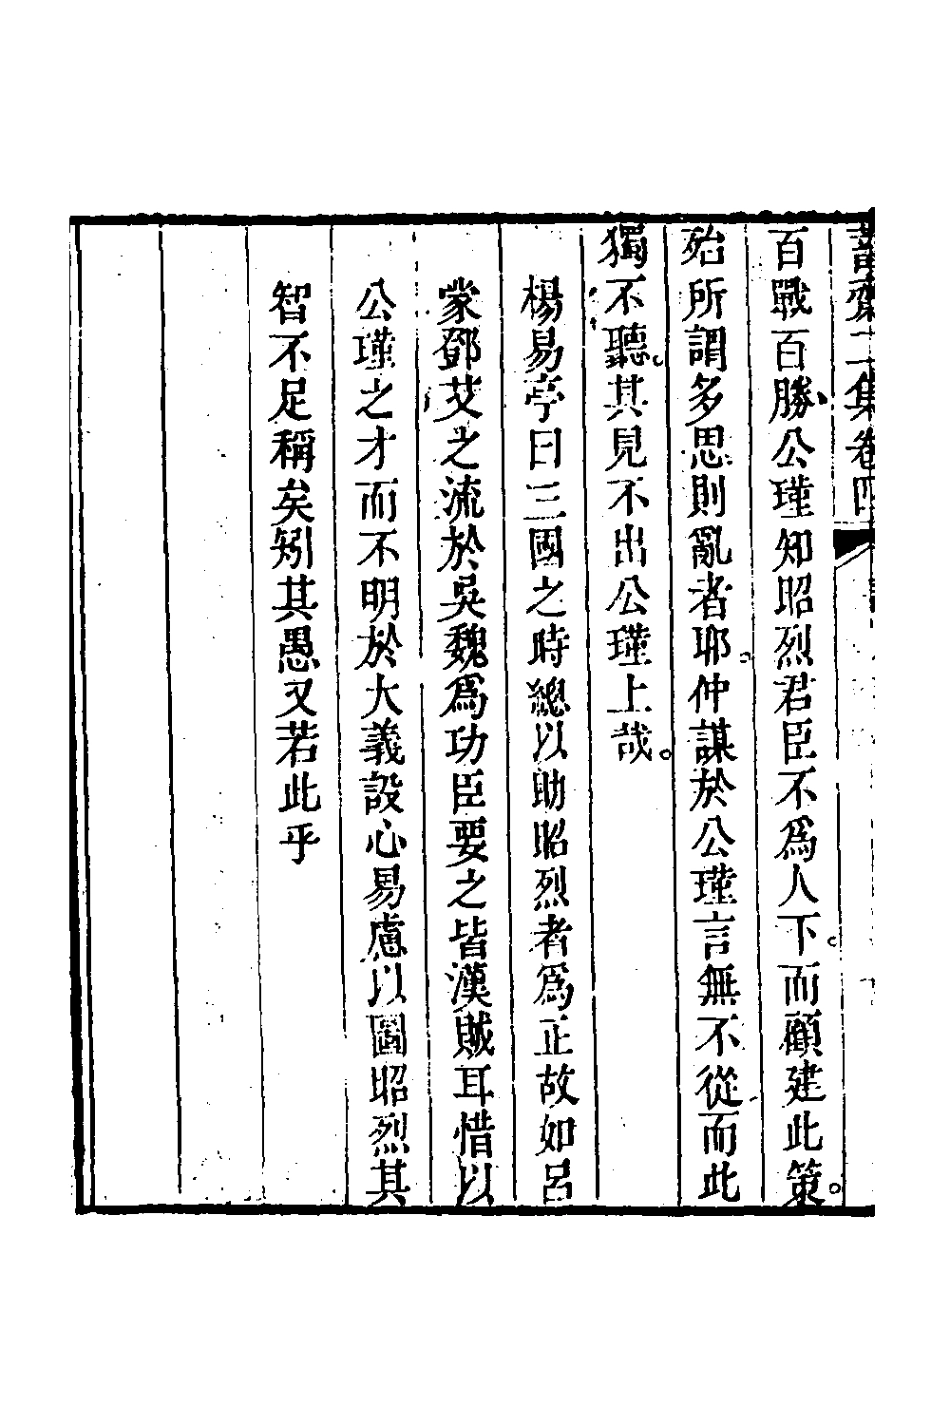 齋二集卷四
百戰百勝公瑾知昭烈君臣不爲人下。而顧建此策。
殆所謂多思則亂者耶。仲謀於公瑾言無不從而此
獨不聽。其見不出公瑾上哉。
楊易亭曰三國之時總以助昭烈者爲正故如呂
蒙鄧艾之流於吳魏爲功臣要之皆漢賊耳惜以
公瑾之才而不明於大義設心易慮以圖昭烈其
智不足稱矣矧其愚又若此乎